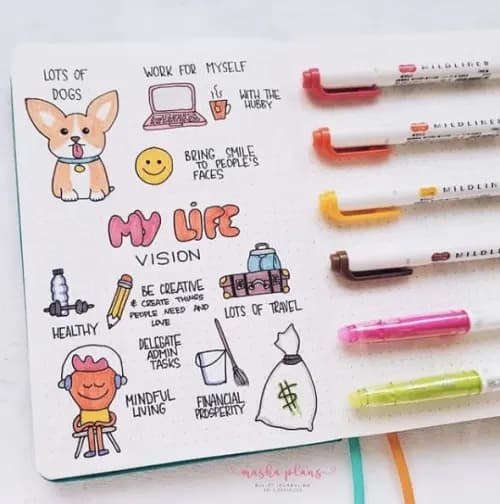 LOTS OF
DOGS
WORK FOR MYSELF
WITH THE
HUBBY
BRING SMILE
TO PEOPLE'S
FACES
MY LIFE
VISION
HEALTHY
BE CREATIVE
& CREATE THINGS
PEOPLE NEED AND
LOVE
LOTS OF TRAVEL
DELEGATE
ADMIN
TASKS
MINDFUL
LIVING
FINANCIAL
PROSPERITY
$
MILDLINER
MILDLINER
MILDLINER
MILDLINER
masha plans